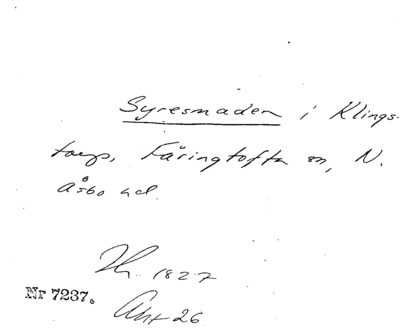 Syresmaden i Klings-
torp, Färingtofta sn, N.
Åsbo hd.
1827
Nr 7237.
Akt 26